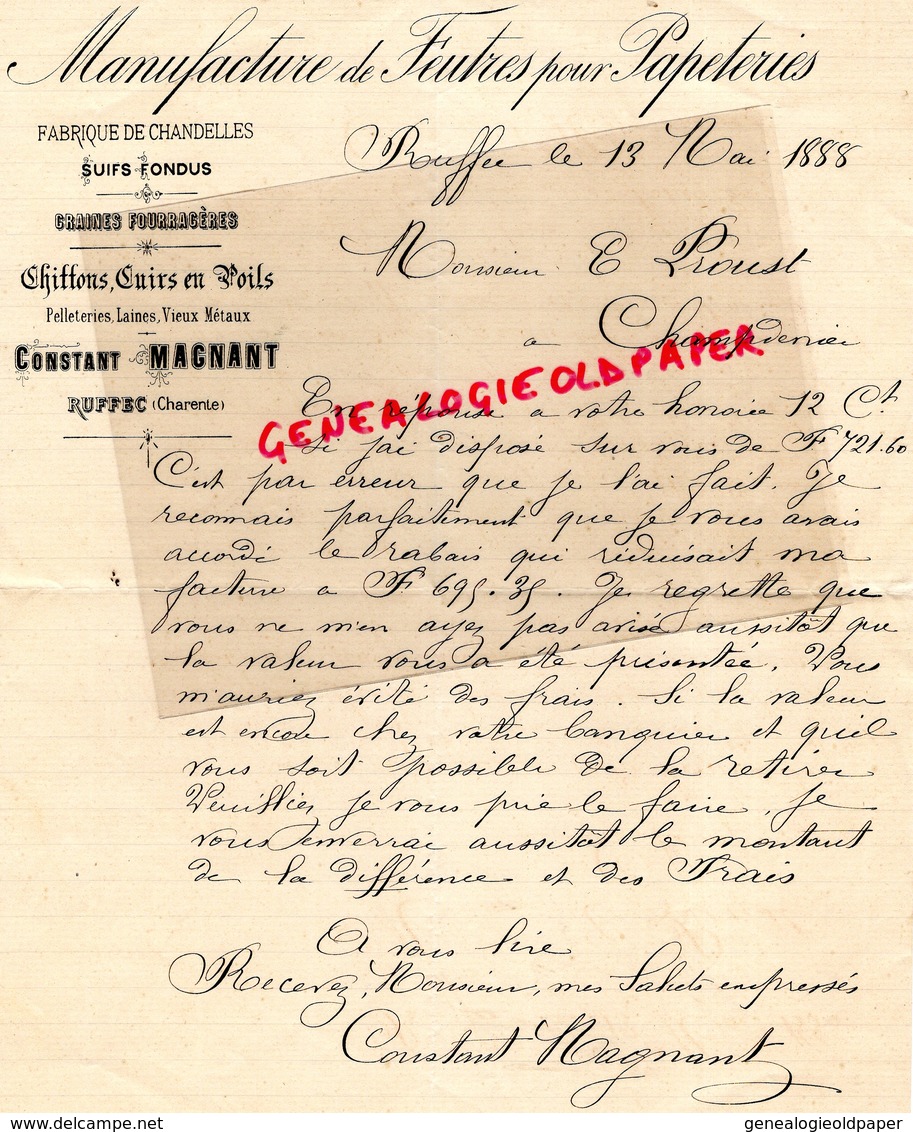 Manufacture de Feutres pour Papeteries
FABRIQUE DE CHANDELLES
SUIFS FONDUS
GRAINES FOURRAGÈRES
Chiffons, Cuirs en Poils
Pelleteries, Laines, Vieux Métaux
CONSTANT MAGNANT
RUFFEC (Charente)
Ruffec le 13 Mai 1888
Monsieur E Proust
a Champdenier
GENEALOGIEOLDPAPER
En réponse a votre honorée 12 Ct
Si jai disposé sur vous de F 721.60
C'est par erreur que je l'ai fait. Je
reconnais parfaitement que je vous avais
accordé le rabais qui réduisait ma
facture a F 695.35. Je regrette que
vous ne m'en ayez pas avisé aussitôt que
la valeur vous a été présentée. Vous
m'auriez évité des frais. Si la valeur
est encore chez votre banquier et quil
vous soit possible de la retirer
Veuilliez je vous prie le faire, je
vous enverrai aussitôt le montant
de la différence et des Frais
A vous lire
Recevez, Monsieur, mes Saluts empressés
Constant Magnant
www.delcampe.net
genealogieoldpaper